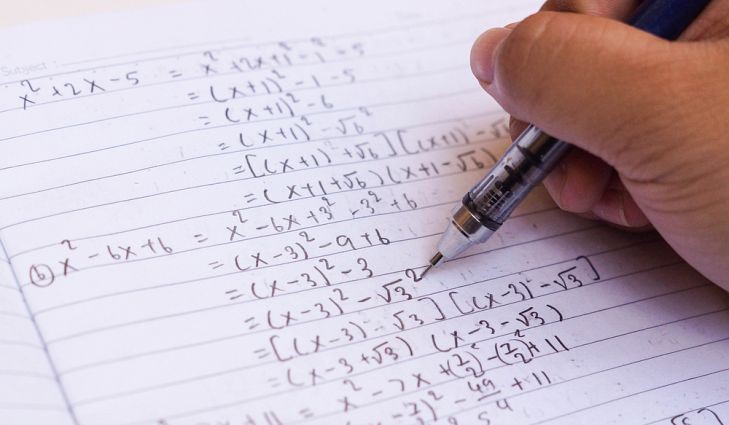 Subject :
x² + 2x - 5 = x² + 2x + 1² - 1² - 5
= (x+1)² - 1 - 5
= (x+1)² - 6
= (x+1)² - √6²
= [(x+1) + √6] [(x+1) - √6]
= (x+1+√6)(x+1-√6)
ⓑ x² - 6x + 6 = x² - 6x + 3² - 3² + 6
= (x-3)² - 9 + 6
= (x-3)² - 3
= (x-3)² - √3²
= [(x-3) - √3] [(x-3) - √3]
= (x-3+√3) (x-3-√3)
x + 11 = x² - 7x + (7/2)² - (7/2)² + 11
- 7/2)² - 49/4 + 11